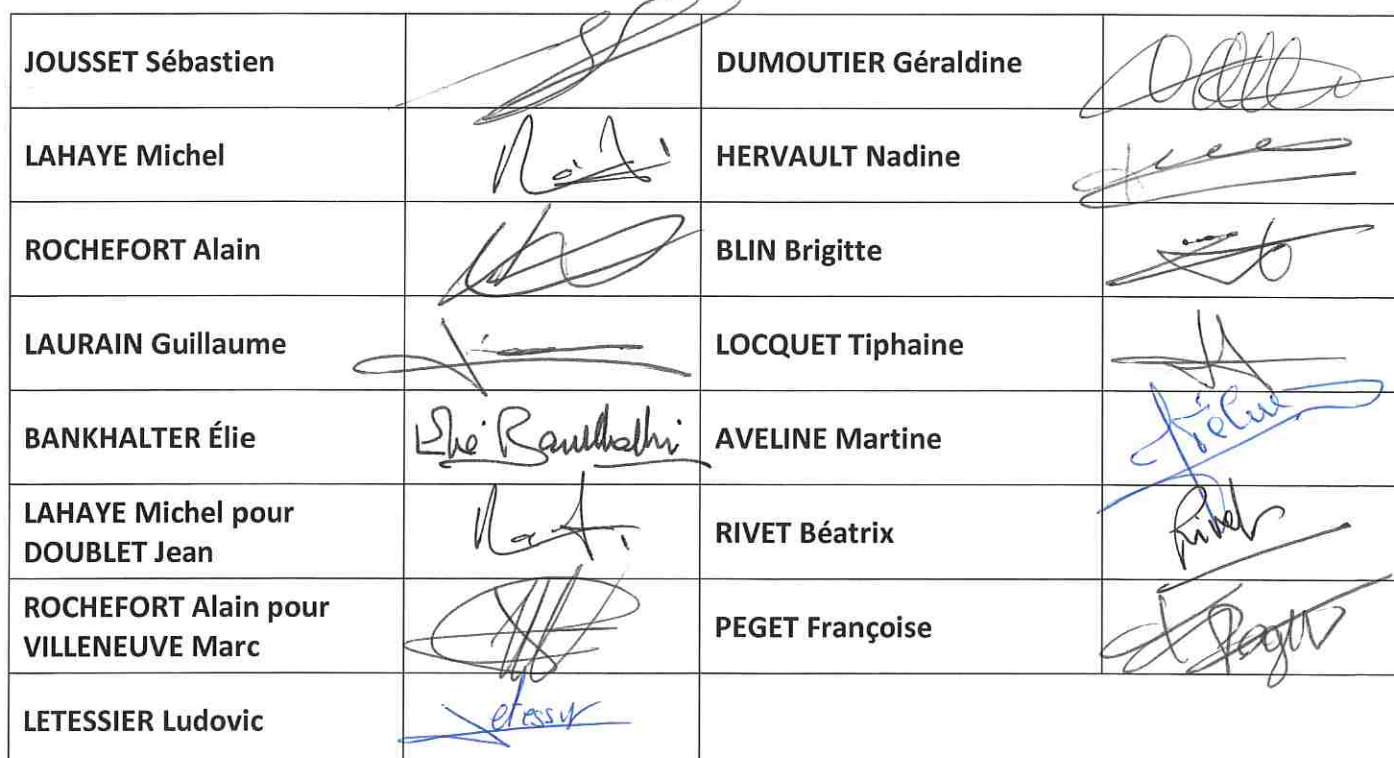 JOUSSET Sébastien
DUMOUTIER Géraldine
LAHAYE Michel
HERVAULT Nadine
ROCHEFORT Alain
BLIN Brigitte
LAURAIN Guillaume
LOCQUET Tiphaine
BANKHALTER Élie
Élie Bankhalter
AVELINE Martine
LAHAYE Michel pour
DOUBLET Jean
RIVET Béatrix
Rivet
ROCHEFORT Alain pour
VILLENEUVE Marc
PEGET Françoise
Peget
LETESSIER Ludovic